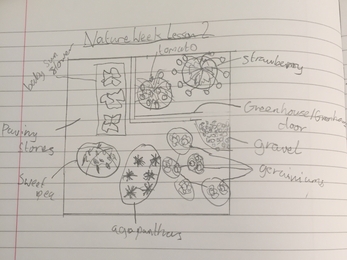 Nature Week Lesson 2
baby sun
flower
tomato
strawberry
Greenhouse/
door
Paving
stones
gravel
geraniums
Sweet
pea
agapanthus